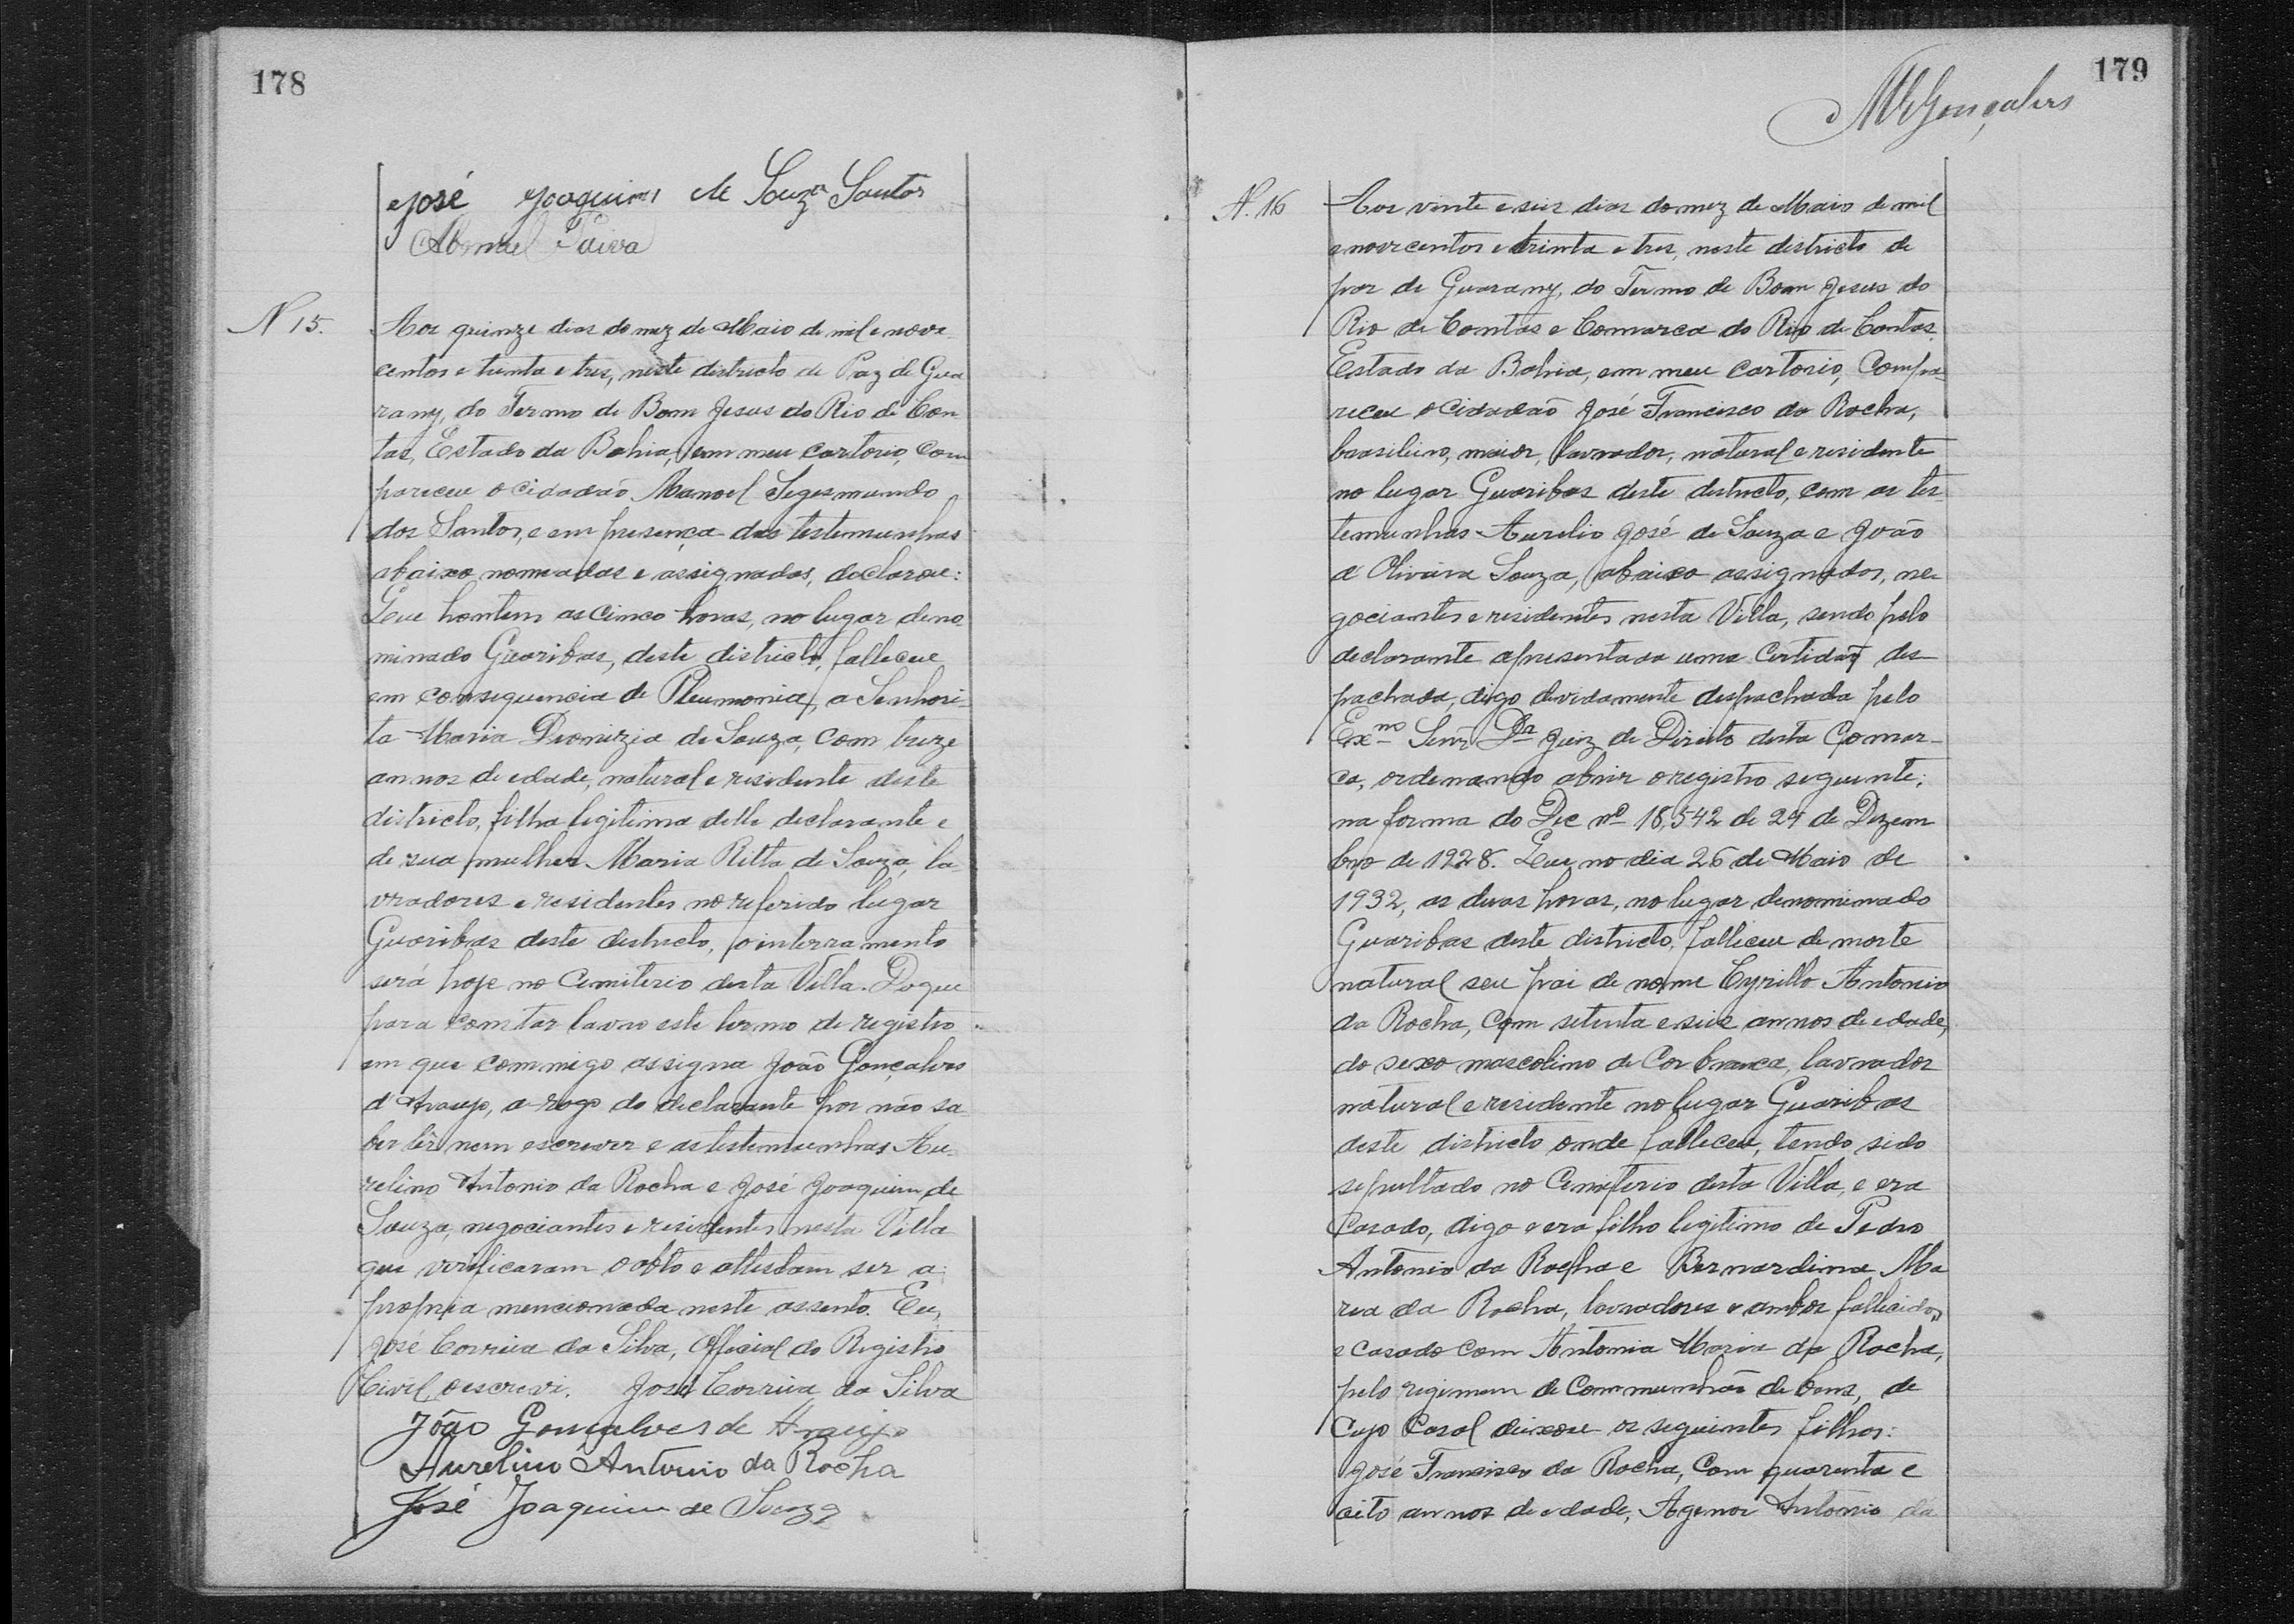 178
José Joaquim de Souza Santos
Manoel Paiva
N 15.
Aos quinze dias do mez de Maio de mil e nove
centos e trinta e tres, neste districto de Paz de Gua
rany, do Termo de Bom Jesus do Rio de Con
tas, Estado da Bahia, em meu cartorio, com
pareceu o cidadão Manoel Segesmundo
dos Santos, e em presença das testemunhas
abaixo nomeadas e assignadas, declarou:
Que hontem as cinco horas, no lugar deno
minado Guaribas, deste districto, falleceu
em consequencia de Pleumonia, a Senhori-
ta Maria Dionizia de Souza, com treze
annos de edade, natural e residente deste
districto, filha legitima delle declarante e
de sua mulher Maria Ritta de Souza, la-
vradores e residentes no referido lugar
Guaribas deste districto, o interramento
será hoje no Cimiterio desta Villa. Do que
para comtar lavro este termo de registro
em que commigo assigna João Gonçalves
d'Araujo, a rogo do declarante por não sa-
ber lêr nem escrever e as testemunhas Au-
relino Antonio da Rocha e José Joaquim de
Souza, negociantes e residentes nesta Villa
que verificaram o obto e attestam ser a
propria mencionada neste assento. Eu,
José Correia da Silva, Official do Registro
Civil, o escrevi. José Correia da Silva
João Gonçalves de Araujo
Aurelino Antonio da Rocha
José Joaquim de Souza
179
Gonçalves
N. 16
Aos vinte e seis dias do mez de Maio de mil
e novecentos e trinta e tres, neste districto de
paz de Guarany, do Termo de Bom Jesus do
Rio de Contas e Comarca do Rio de Contas,
Estado da Bahia, em meu cartorio, compa-
receu o cidadão José Francisco da Rocha,
brasileiro, maior, lavrador, natural e residente
no lugar Guaribas deste districto, com as tes-
temunhas Aurelio José de Souza e João
d'Oliveira Souza, abaixo assignados, ne-
gociantes e residentes nesta Villa, sendo pelo
declarante apresentada uma certidão des
pachada, digo devidamente despachada pelo
Exmo Senr Dr Juiz de Direito desta Comar-
ca, ordenando abrir o registro seguinte:
na forma do Dec no 18,542 de 24 de Dezem
bro de 1928. Que no dia 26 de Maio de
1932, as duas horas, no lugar denominado
Guaribas deste districto, falleceu de morte
natural seu pai de nome Cyrillo Antonio
da Rocha, com setenta e seis annos de edade,
do sexo mascolino de cor branca, lavrador
natural e residente no lugar Guaribas
deste districto onde falleceu, tendo sido
sepultado no Cemiterio desta Villa, e era
Casado, digo e era filho legitimo de Pedro
Antonio da Rocha e Bernardina Ma
ria da Rocha, lavradores e ambos fallecidos,
e casado com Antonia Maria da Rocha,
pelo regimem de Communhão de bens, de
cujo Casal deixou os seguintes filhos:
José Francisco da Rocha, com quarenta e
oito annos de edade, Agenor Antonio da